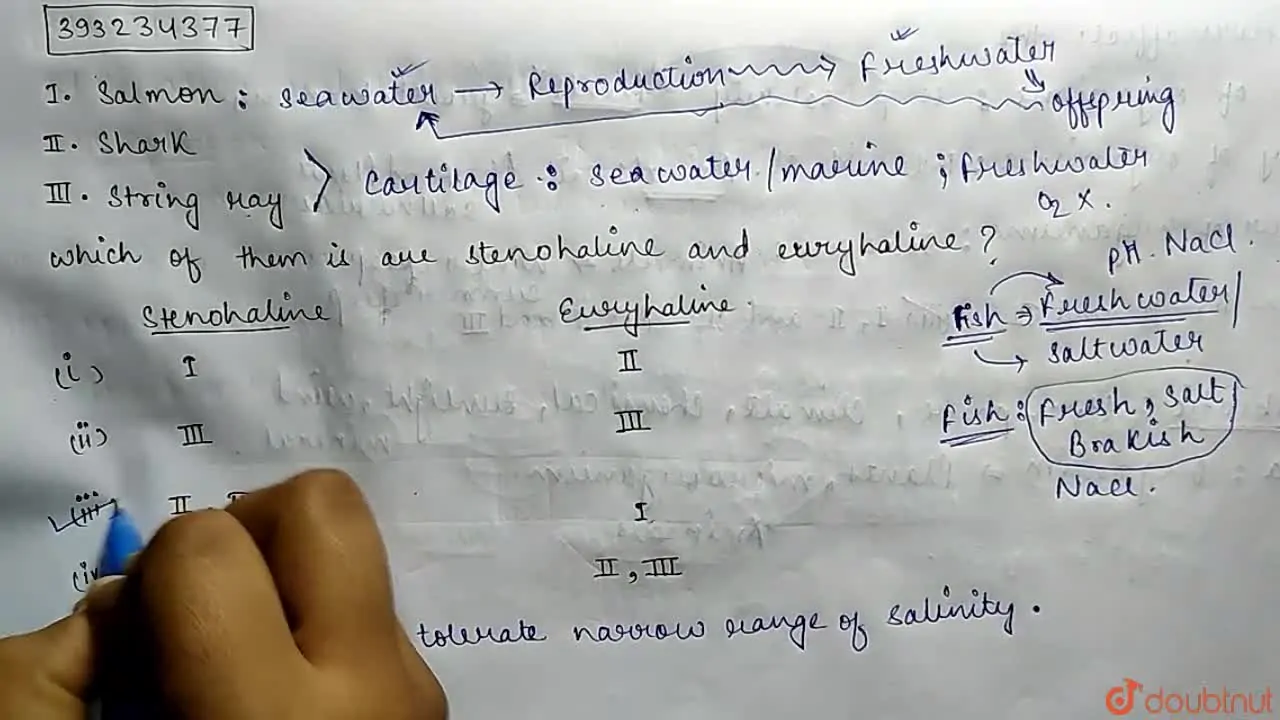 393234377
I. Salmon: seawater → Reproduction → freshwater
offspring
II. Shark
III. String ray
Cartilage: seawater/marine; freshwater
O2 X.
which of them is are stenohaline and euryhaline?
pH. Nacl.
Stenohaline Euryhaline
Fish → freshwater/
saltwater
(i) I II
(ii) III III
Fish: fresh, salt
Brakish
Nacl.
(iii) II, I
(iv II, III
tolerate narrow range of salinity.
doubtnut